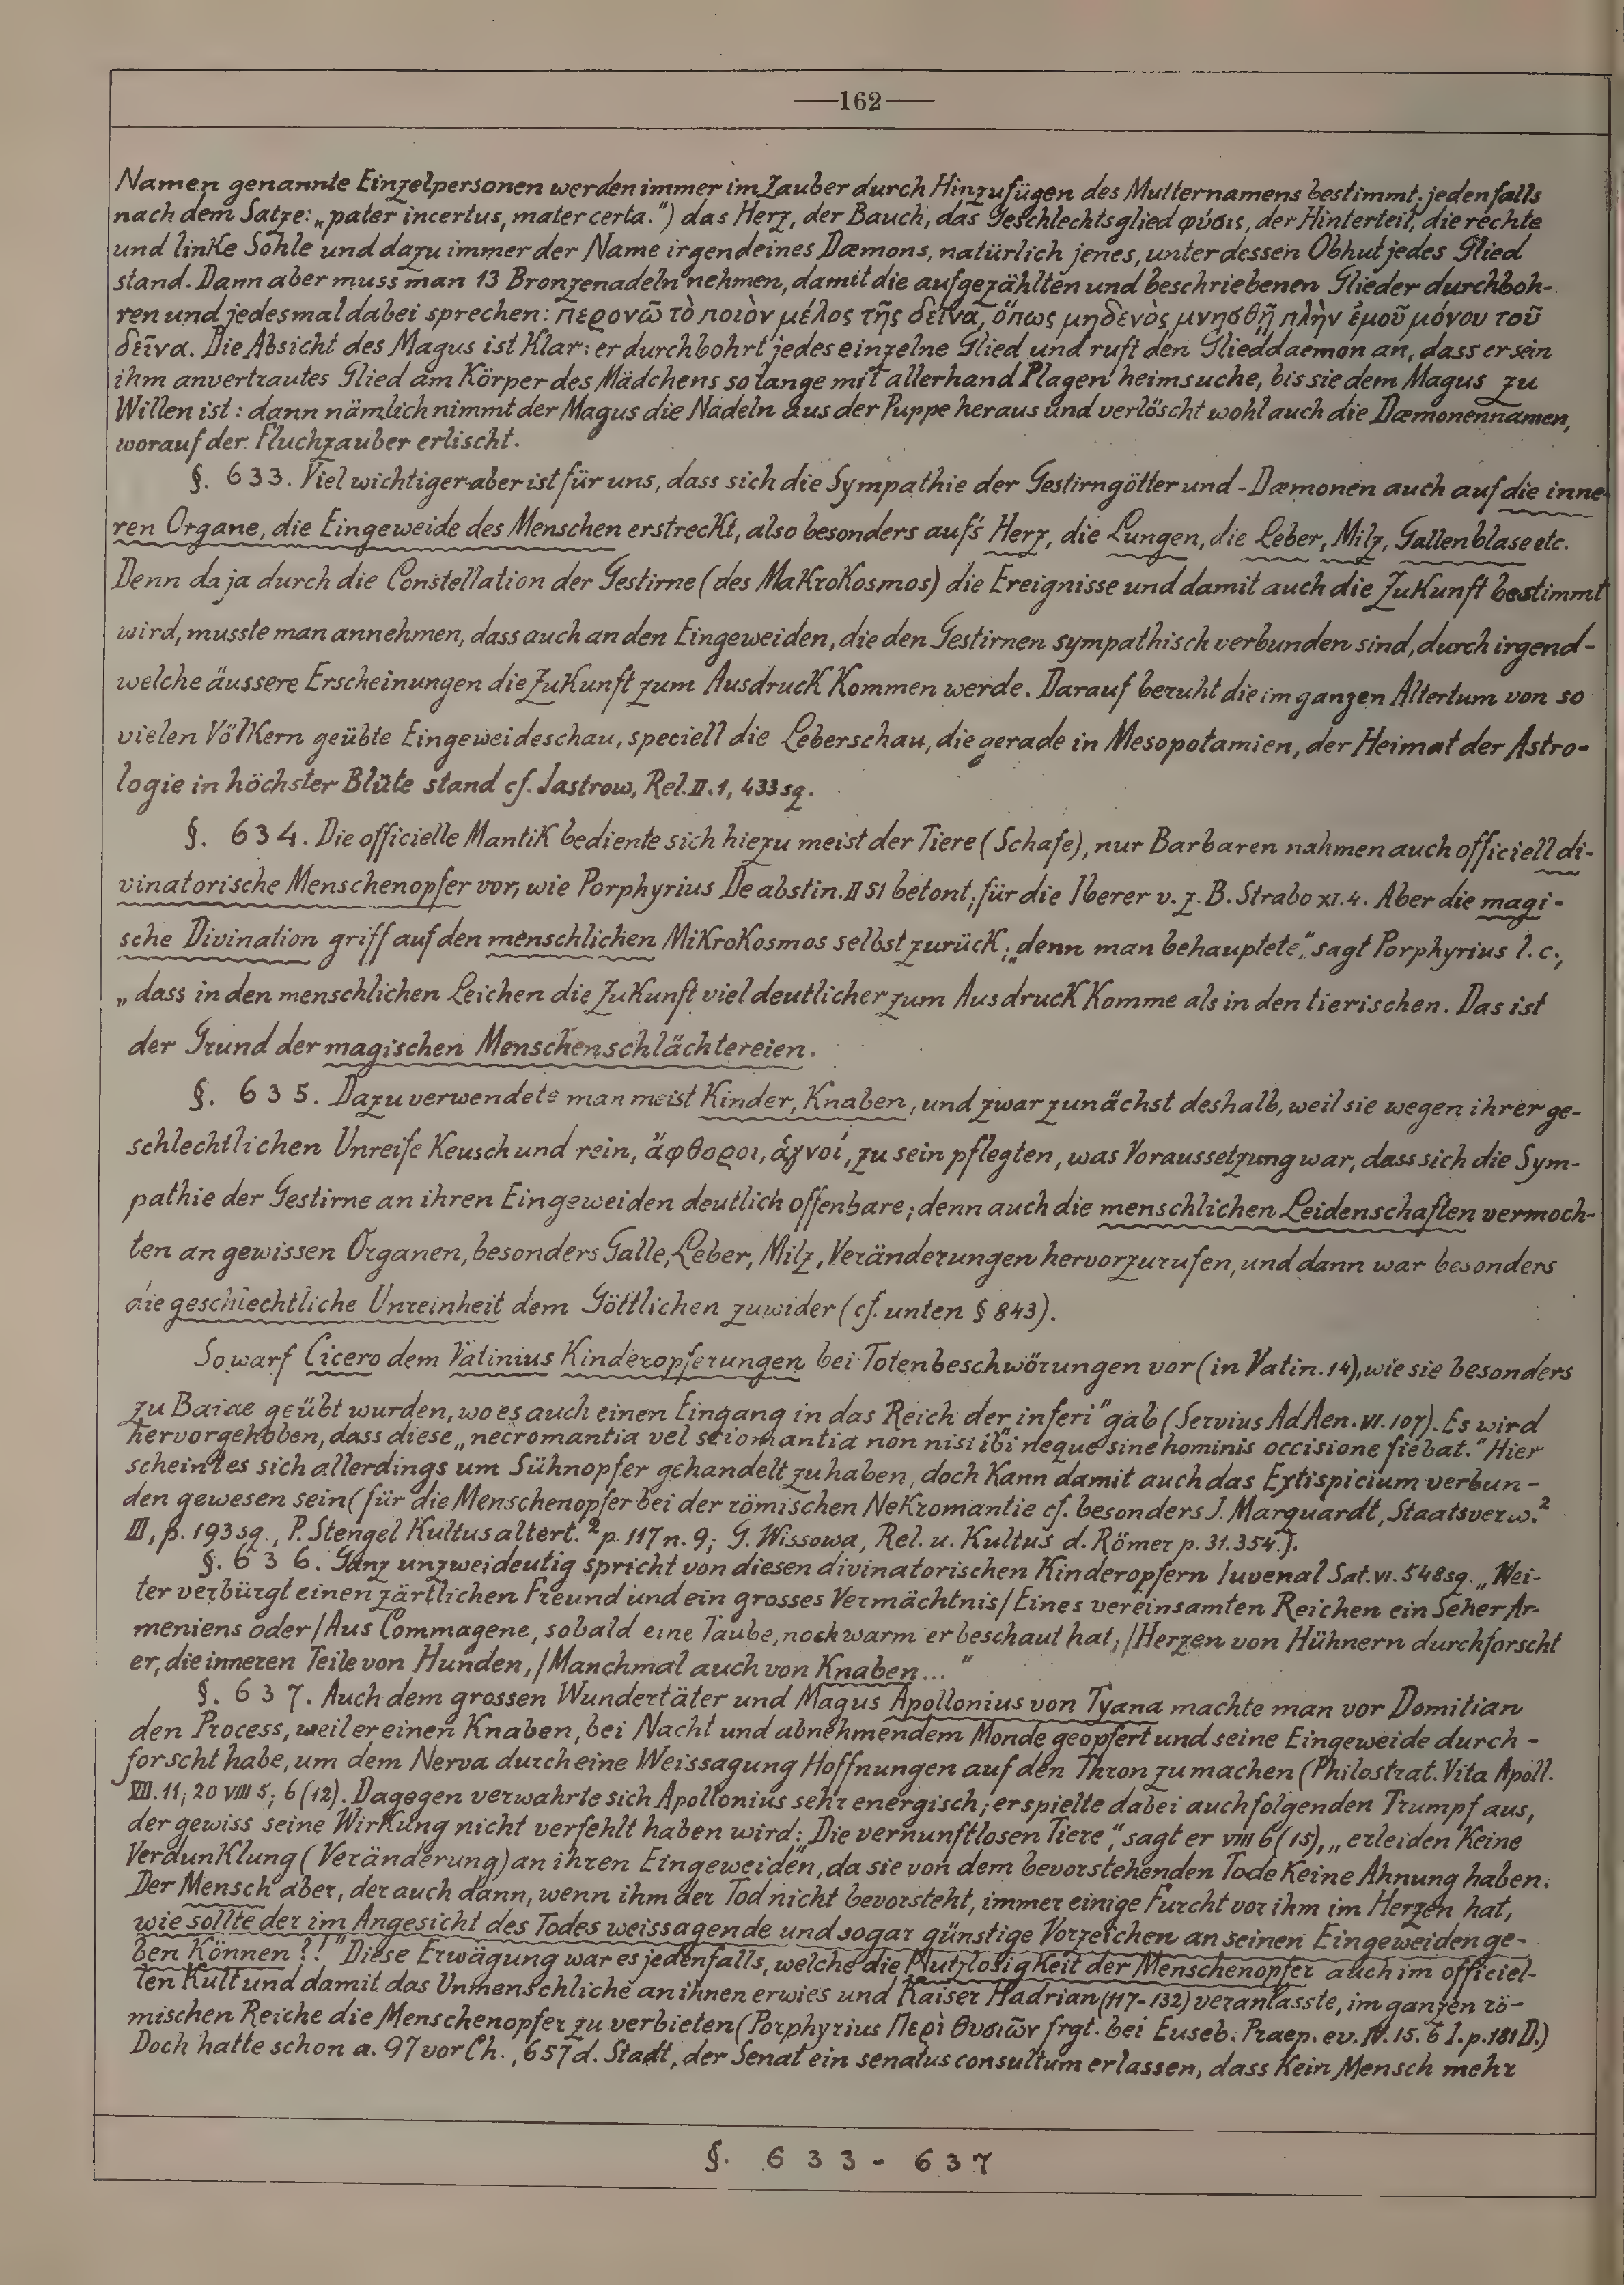 —162—
Namen genannte Einzelpersonen werden immer im Zauber durch Hinzufügen des Mutternamens bestimmt, jedenfalls
nach dem Satze: „pater incertus, mater certa.") das Herz, der Bauch, das Geschlechtsglied φύσις, der Hinterteil, die rechte
und linke Sohle und dazu immer der Name irgendeines Dæmons, natürlich jenes, unter dessen Obhut jedes Glied
stand. Dann aber muss man 13 Bronzenadeln nehmen, damit die aufgezählten und beschriebenen Glieder durchboh-
ren und jedesmal dabei sprechen: περονῶ τὸ ποιὸν μέλος τῆς δεῖνα, ὅπως μηδενὸς μνησθῇ πλὴν ἐμοῦ μόνου τοῦ
δεῖνα. Die Absicht des Magus ist klar: er durchbohrt jedes einzelne Glied und ruft den Glieddaemon an, dass er sein
ihm anvertrautes Glied am Körper des Mädchens so lange mit allerhand Plagen heimsuche, bis sie dem Magus zu
Willen ist: dann nämlich nimmt der Magus die Nadeln aus der Puppe heraus und verlöscht wohl auch die Dæmonennamen,
worauf der Fluchzauber erlischt.
§. 633. Viel wichtiger aber ist für uns, dass sich die Sympathie der Gestirngötter und -Dæmonen auch auf die inne-
ren Organe, die Eingeweide des Menschen erstreckt, also besonders auf's Herz, die Lungen, die Leber, Milz, Gallenblase etc.
Denn da ja durch die Constellation der Gestirne (des Makrokosmos) die Ereignisse und damit auch die Zukunft bestimmt
wird, musste man annehmen, dass auch an den Eingeweiden, die den Gestirnen sympathisch verbunden sind, durch irgend-
welche äussere Erscheinungen die Zukunft zum Ausdruck kommen werde. Darauf beruht die im ganzen Altertum von so
vielen Völkern geübte Eingeweideschau, speciell die Leberschau, die gerade in Mesopotamien, der Heimat der Astro-
logie in höchster Blüte stand cf. Jastrow, Rel. II. 1, 433 sq.
§. 634. Die officielle Mantik bediente sich hiezu meist der Tiere (Schafe), nur Barbaren nahmen auch officiell di-
vinatorische Menschenopfer vor, wie Porphyrius De abstin. II 51 betont; für die Iberer v. z. B. Strabo XI. 4. Aber die magi-
sche Divination griff auf den menschlichen Mikrokosmos selbst zurück; „denn man behauptete", sagt Porphyrius l. c.,
„dass in den menschlichen Leichen die Zukunft viel deutlicher zum Ausdruck komme als in den tierischen. Das ist
der Grund der magischen Menschenschlächtereien.
§. 635. Dazu verwendete man meist Kinder, Knaben, und zwar zunächst deshalb, weil sie wegen ihrer ge-
schlechtlichen Unreife keusch und rein, ἄφθοροι, ἁγνοί, zu sein pflegten, was Voraussetzung war, dass sich die Sym-
pathie der Gestirne an ihren Eingeweiden deutlich offenbare; denn auch die menschlichen Leidenschaften vermoch-
ten an gewissen Organen, besonders Galle, Leber, Milz, Veränderungen hervorzurufen, und dann war besonders
die geschlechtliche Unreinheit dem Göttlichen zuwider (cf. unten § 843).
So warf Cicero dem Vatinius Kinderopferungen bei Totenbeschwörungen vor (in Vatin. 14), wie sie besonders
zu Baiae geübt wurden, wo es auch einen Eingang in das Reich der „inferi" gab (Servius Ad Aen. VI. 107). Es wird
hervorgehoben, dass diese „necromantia vel sciomantia non nisi ibi neque sine hominis occisione fiebat." Hier
scheint es sich allerdings um Sühnopfer gehandelt zu haben, doch kann damit auch das Extispicium verbun-
den gewesen sein (für die Menschenopfer bei der römischen Nekromantie cf. besonders J. Marquardt, Staatsverw.²
III, p. 193 sq., P. Stengel Kultusaltert.² p. 117 n. 9; G. Wissowa, Rel. u. Kultus d. Römer p. 31. 354.).
§. 636. Ganz unzweideutig spricht von diesen divinatorischen Kinderopfern Iuvenal Sat. VI. 548 sq. „Wei-
ter verbürgt einen zärtlichen Freund und ein grosses Vermächtnis/ Eines vereinsamten Reichen ein Seher Ar-
meniens oder / Aus Commagene, sobald eine Taube, noch warm er beschaut hat; /Herzen von Hühnern durchforscht
er, die inneren Teile von Hunden, / Manchmal auch von Knaben... "
§. 637. Auch dem grossen Wundertäter und Magus Apollonius von Tyana machte man vor Domitian
den Process, weil er einen Knaben, bei Nacht und abnehmendem Monde geopfert und seine Eingeweide durch-
forscht habe, um dem Nerva durch eine Weissagung Hoffnungen auf den Thron zu machen (Philostrat. Vita Apoll.
VII. 11; 20 VIII 5; 6 (12). Dagegen verwahrte sich Apollonius sehr energisch; er spielte dabei auch folgenden Trumpf aus,
der gewiss seine Wirkung nicht verfehlt haben wird: „Die vernunftlosen Tiere", sagt er VIII 6 (15), „erleiden keine
Verdunklung (Veränderung) an ihren Eingeweiden", da sie von dem bevorstehenden Tode keine Ahnung haben.
Der Mensch aber, der auch dann, wenn ihm der Tod nicht bevorsteht, immer einige Furcht vor ihm im Herzen hat,
wie sollte der im Angesicht des Todes weissagende und sogar günstige Vorzeichen an seinen Eingeweiden ge-
ben können ?! " Diese Erwägung war es jedenfalls, welche die Nutzlosigkeit der Menschenopfer auch im officiel-
len Kult und damit das Unmenschliche an ihnen erwies und Kaiser Hadrian (117-132) veranlasste, im ganzen rö-
mischen Reiche die Menschenopfer zu verbieten (Porphyrius Περὶ θυσιῶν frgt. bei Euseb. Praep. ev. IV. 15. 6 l. p. 181 D.)
Doch hatte schon a. 97 vor Ch., 657 d. Stadt, der Senat ein senatus consultum erlassen, dass kein Mensch mehr
§. 633 - 637